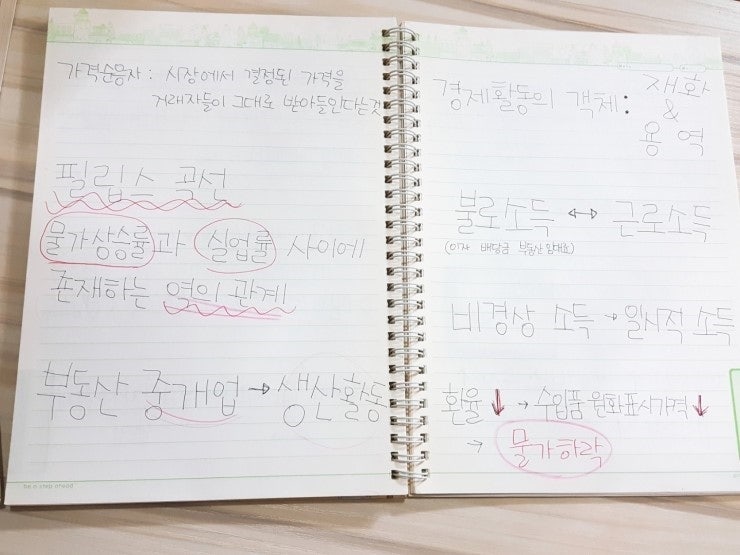 가격순응자 : 시장에서 결정된 가격을
거래자들이 그대로 받아들인다는것
필립스 곡선
물가상승률과 실업률 사이에
존재하는 역의 관계
부동산 중개업 → 생산활동
be a step ahead
경제활동의 객체 : 재화
&
용역
불로소득 ↔ 근로소득
(이자 배당금 부동산 임대료)
비경상 소득 → 일시적 소득
환율 ↓ → 수입품 원화표시가격 ↓
→ 물가하락